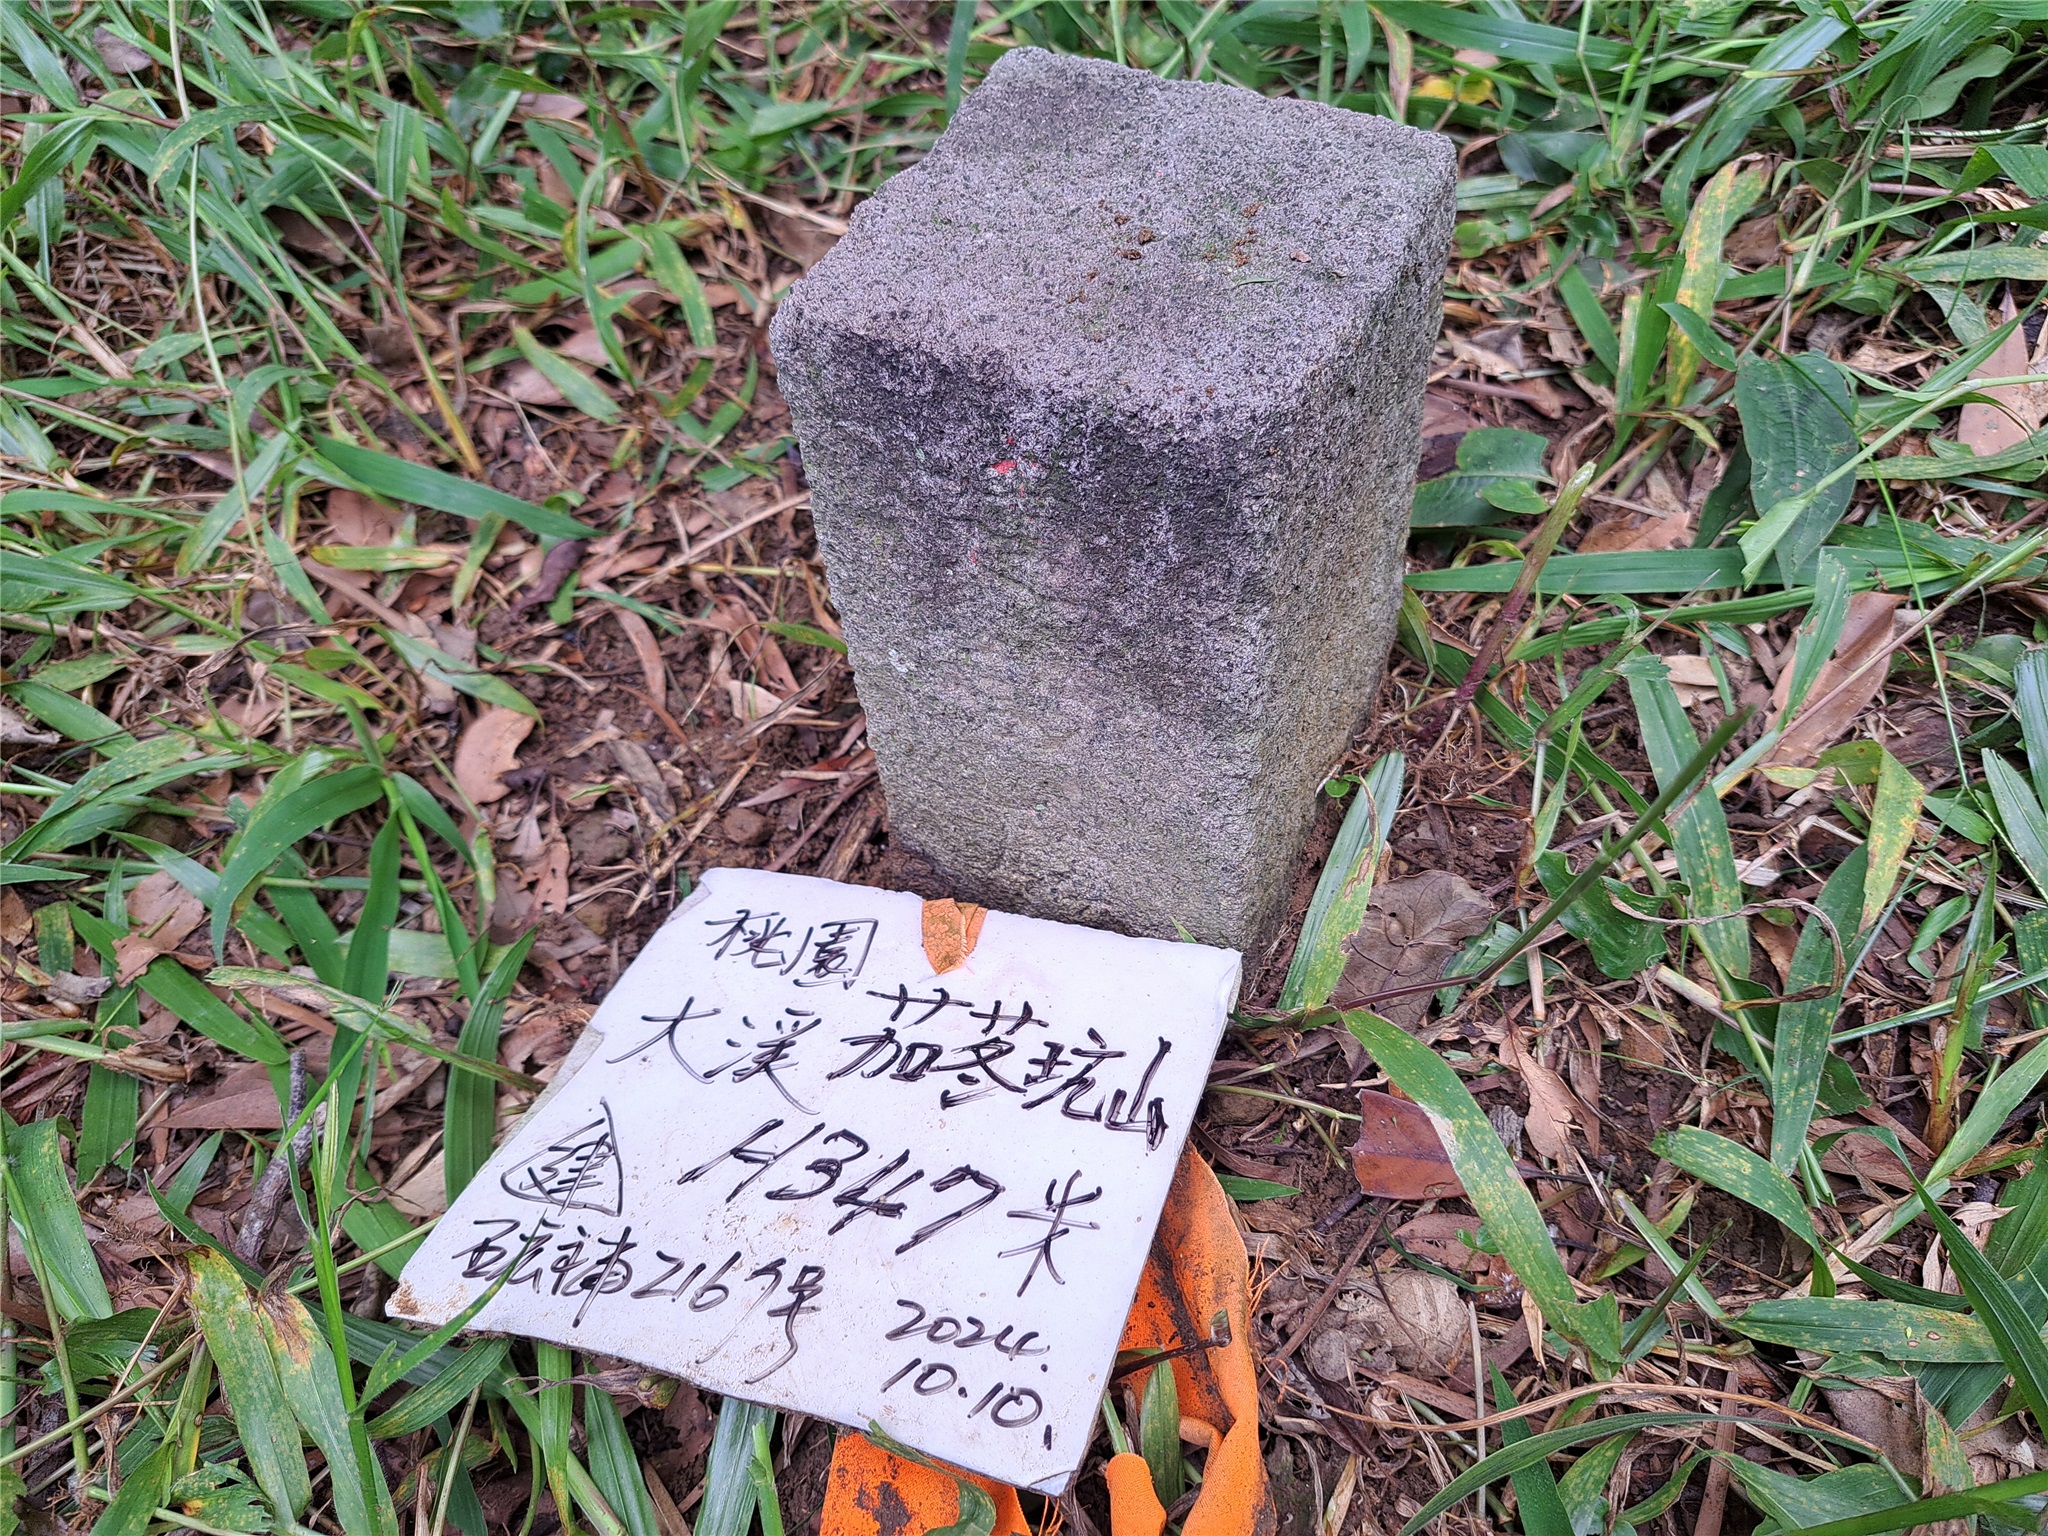 桃園
大溪 茄苳坑山
H347米
建
磺補216号
2024.
10.10.